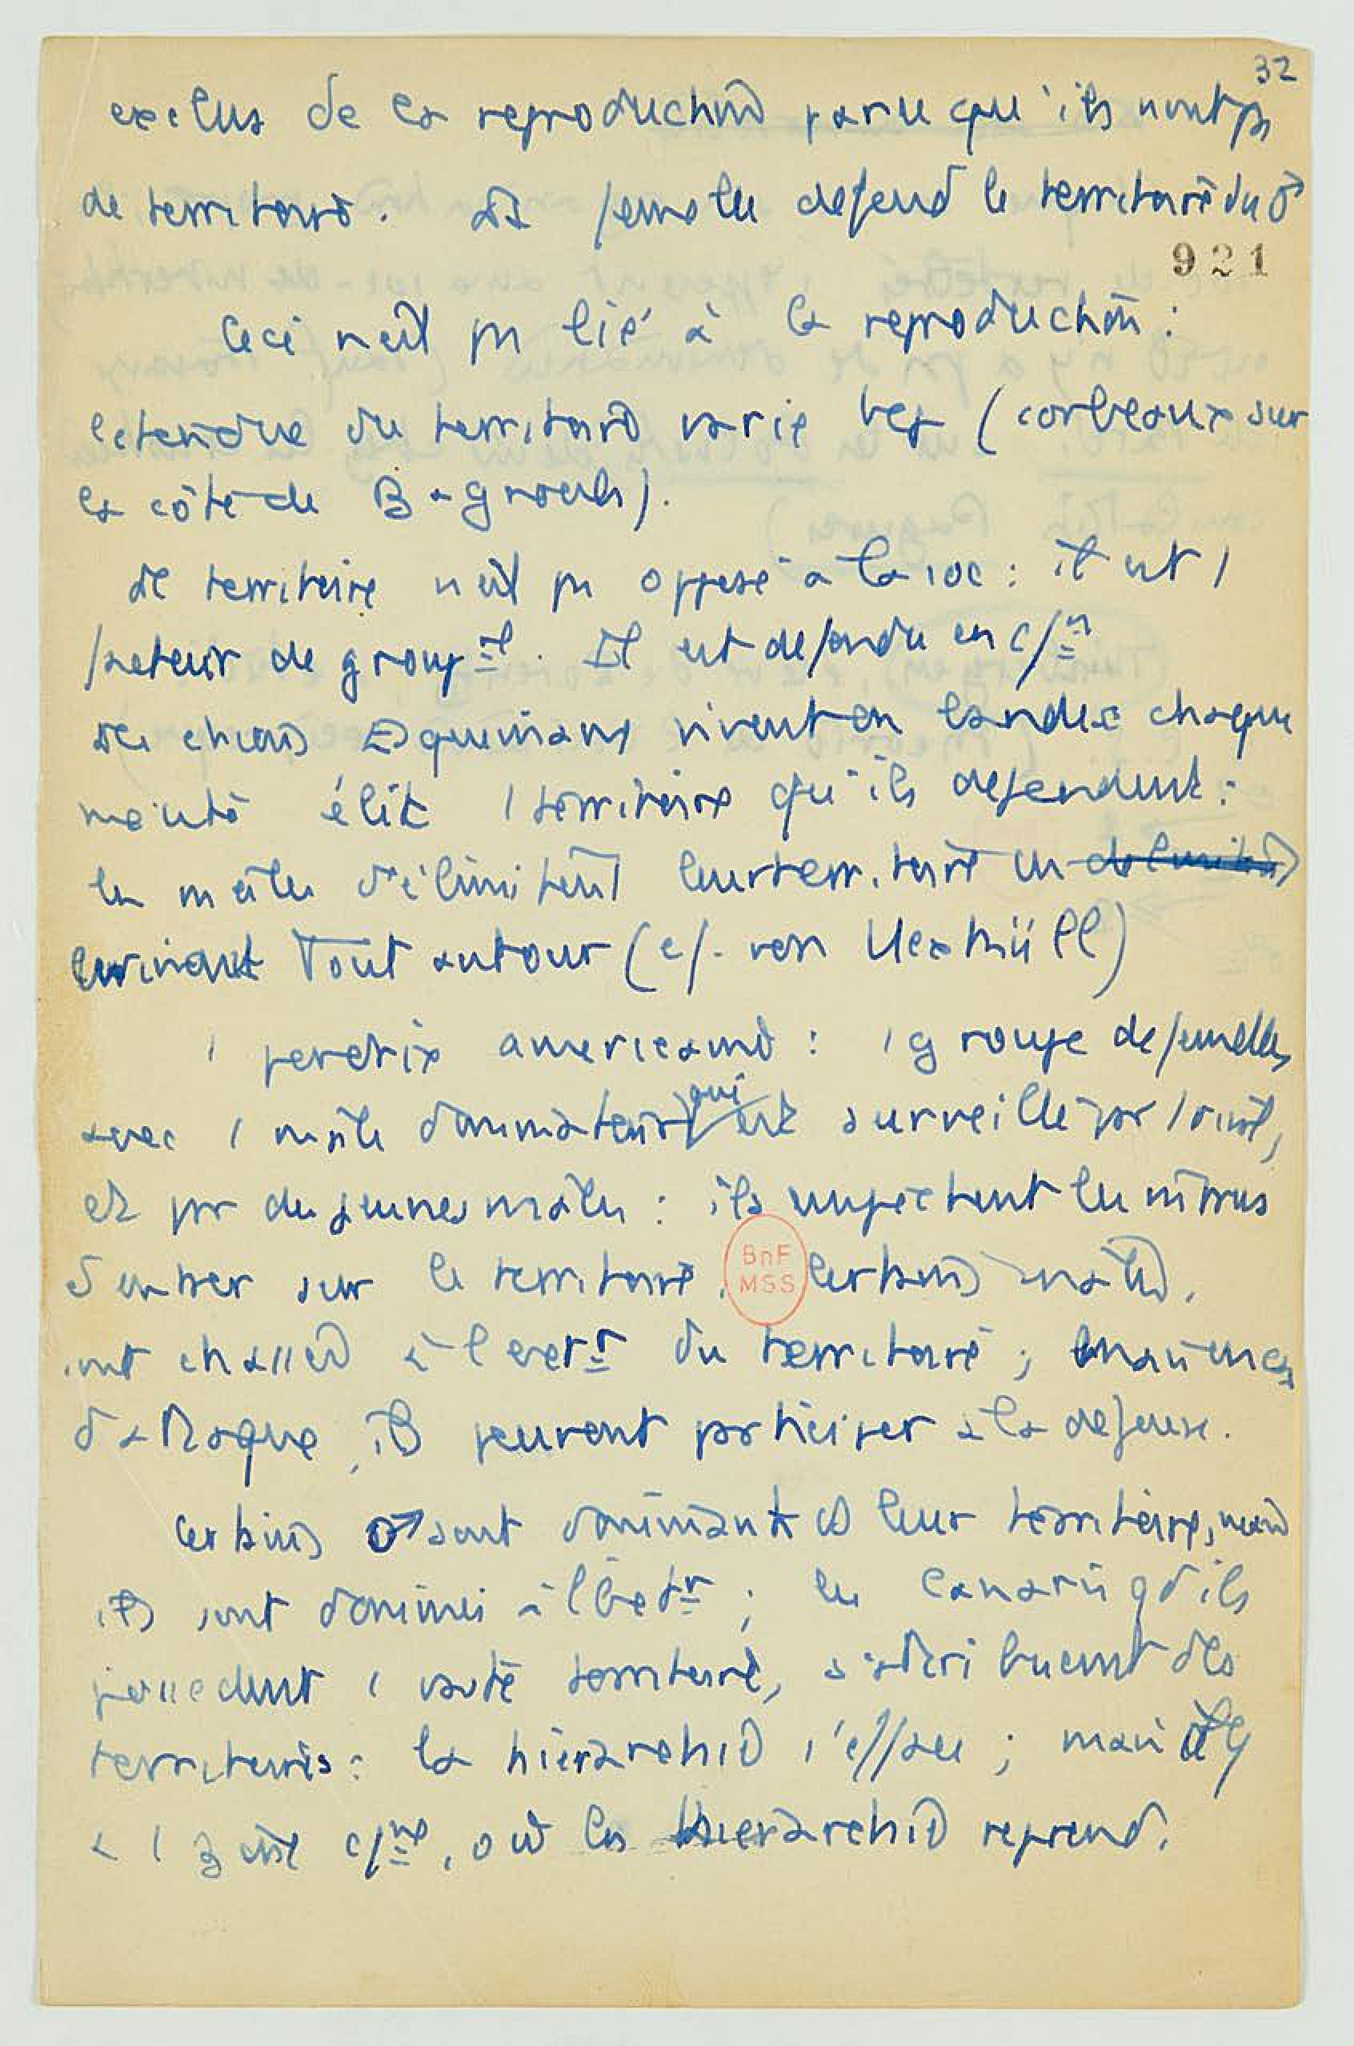 32
exclus de la reproduction parce qu'ils n'ont pas
de territoire. La femelle défend le territoire du ♂
921
Ceci n'est pas lié à la reproduction :
l'étendue du territoire varie bcp (corbeaux sur
la côte de
Le territoire n'est pas opposé à la soc : il est 1
facteur de groupt. Il est défendu en c/n
Les chiens Esquimaux vivent en bandes chaque
meute élit 1 territoire qu'ils défendent :
les mâles délimitent leur territoire en
urinant tout autour (cf. von Uexküll)
1 perdrix américaine : 1 groupe de femelles
avec 1 mâle dominateur qui est surveillé par
et par des jeunes mâles : ils empêchent les intrus
d'entrer sur le territoire. Certains mâles
BnF
MSS
sont chassés à l'extr du territoire ; mais en cas
d'attaque, ils peuvent participer à la défense.
Certains ♂ sont dominants ds leur territoire, mais
ils sont dominés à l'extr ; les canaris qd ils
possèdent 1 vaste territoire, s'attribuent des
territoires : la hiérarchie s'efface ; mais il y
a 1 zone cne, où la hiérarchie reprend.